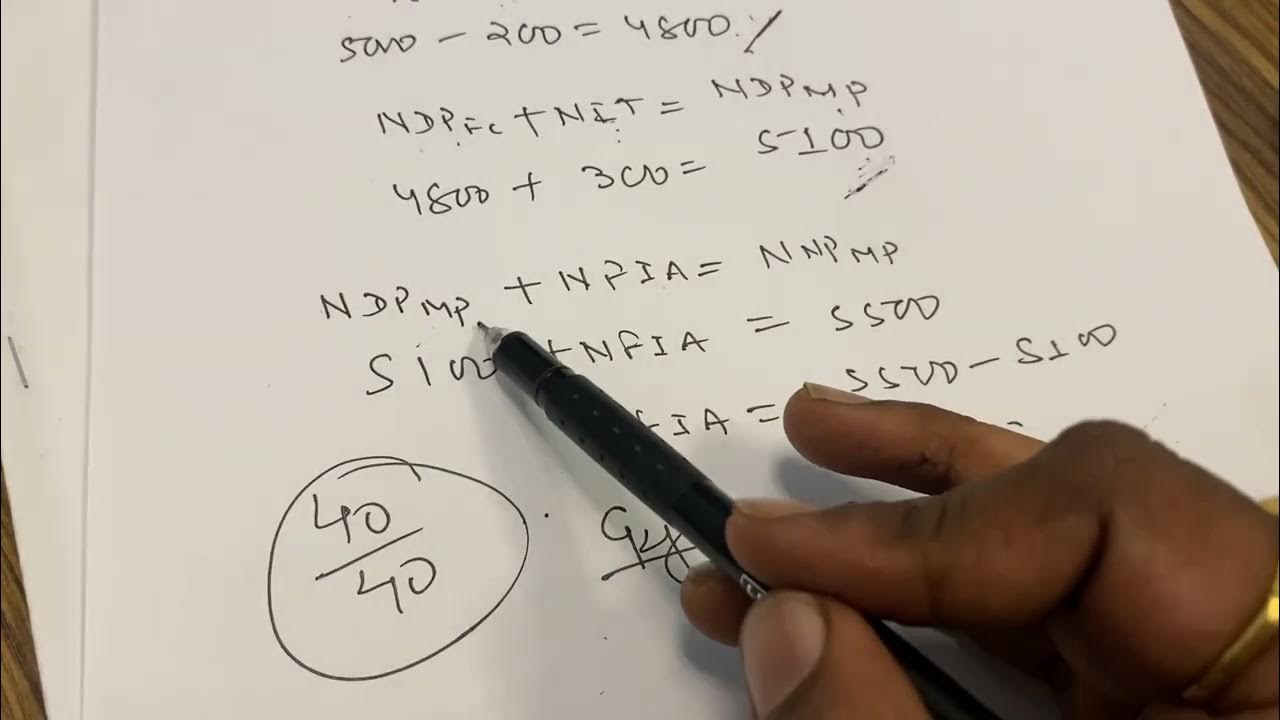 5000 - 200 = 4800
NDP FC + NIT = NDP MP
4800 + 300 = 5100
NDP MP + NFIA = NNP MP
5100 + NFIA = 5500
FIA = 5500 - 5100
40
40